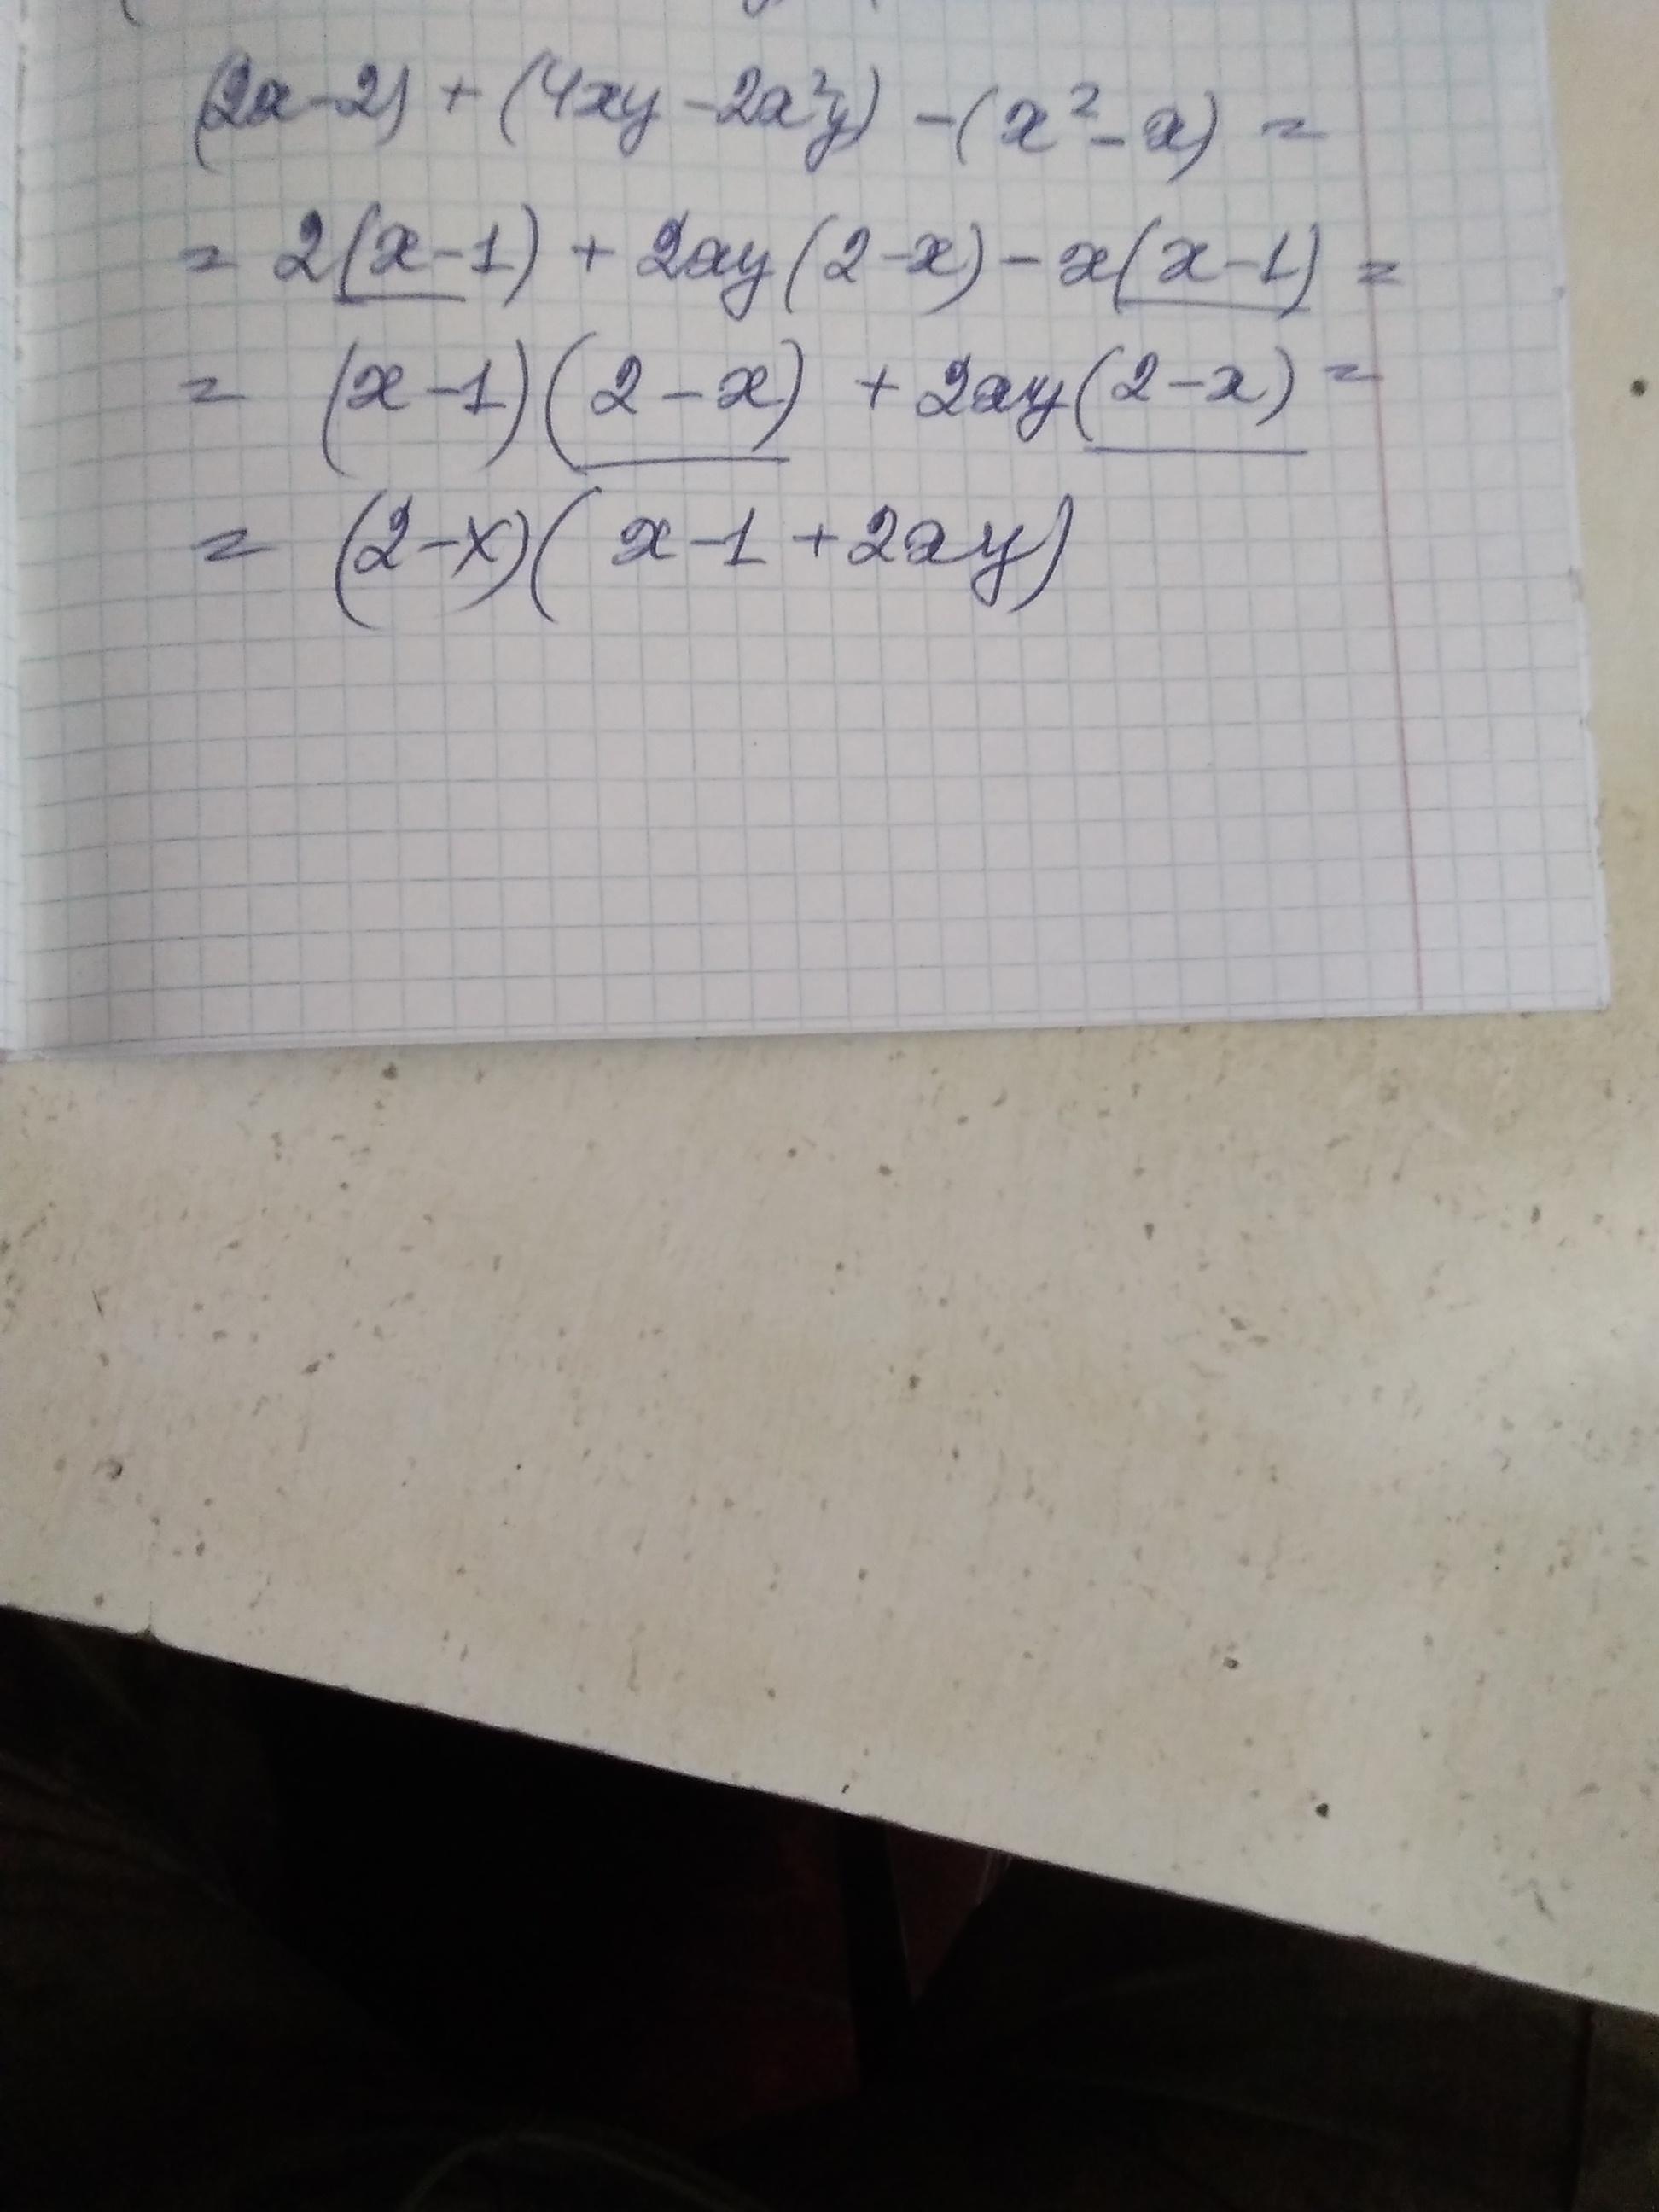 (2x-2) + (4xy - 2x²y) - (x² - x) =
= 2(x-1) + 2xy(2-x) - x(x-1) =
= (x-1)(2-x) + 2xy(2-x) =
= (2-x)(x-1+2xy)